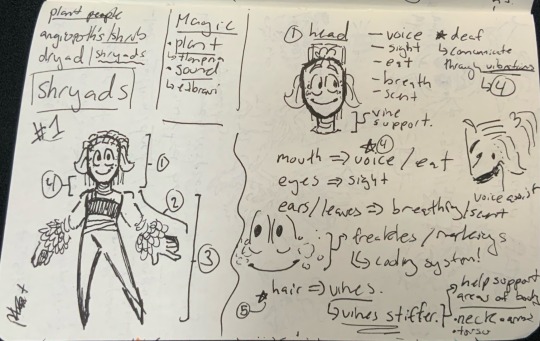 plant people
angiopoths/shrub
dryad/shryads
shryads
#1
Magic
• plant
• sound
① head
— voice
— sight
— eat
— breath
— scent
vine
support.
★ deaf
↳ communicate
through vibrations
↳ ④
①
④
②
③
★④
mouth ⇒ voice / eat
eyes ⇒ sight
ears/leaves ⇒ breathing/scent
voice assist
freckles / markings
↳ coding system!
⑤ ★ hair ⇒ vines.
↳ vines stiffer.
↳ help support
areas of body
• neck • arms
• torso